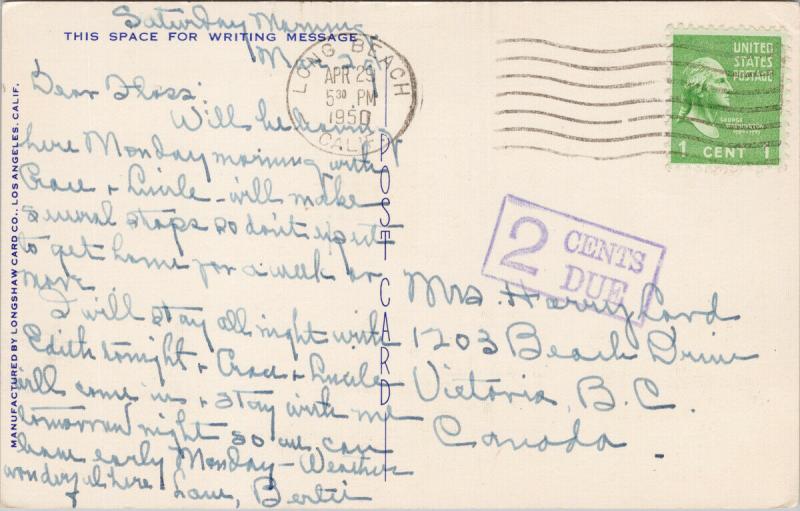 Saturday Morning
THIS SPACE FOR WRITING MESSAGE
Mar 29
Dear Floss:
Will be leaving
here Monday morning with
Grace & Lucile - will make
several stops so don't expect
to get home for a week or
more.
I will stay all night with
Edith tonight & Grace & Lucile
will come in & stay with me
tomorrow night so we can
leave early Monday - Weather
wonderful here Love, Bertie
MANUFACTURED BY LONGSHAW CARD CO., LOS ANGELES, CALIF.
POST CARD
LONG BEACH
APR 29
5 30 PM
1950
CALIF.
UNITED
STATES
POSTAGE
GEORGE
WASHINGTON
1 CENT 1
2 CENTS
DUE
Mrs. Harry Lord
1203 Beach Drive
Victoria, B.C.
Canada